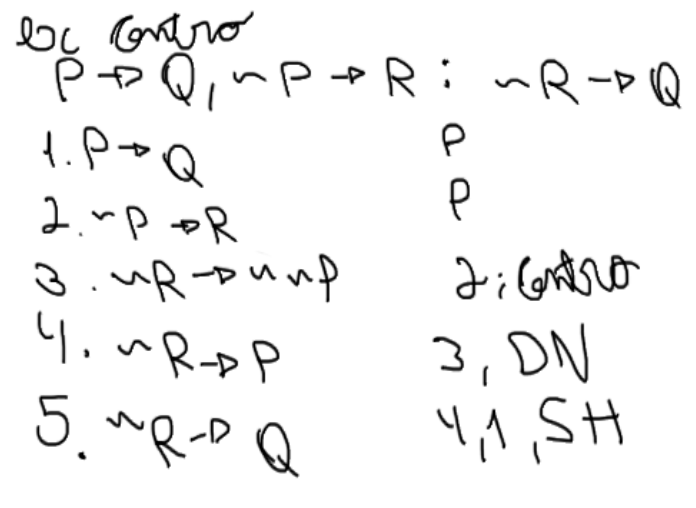 Ex Contro
P → Q, ~P → R : ~R → Q
1. P → Q P
2. ~P → R P
3. ~R → ~~P 2, Contro
4. ~R → P 3, DN
5. ~R → Q 4,1, SH